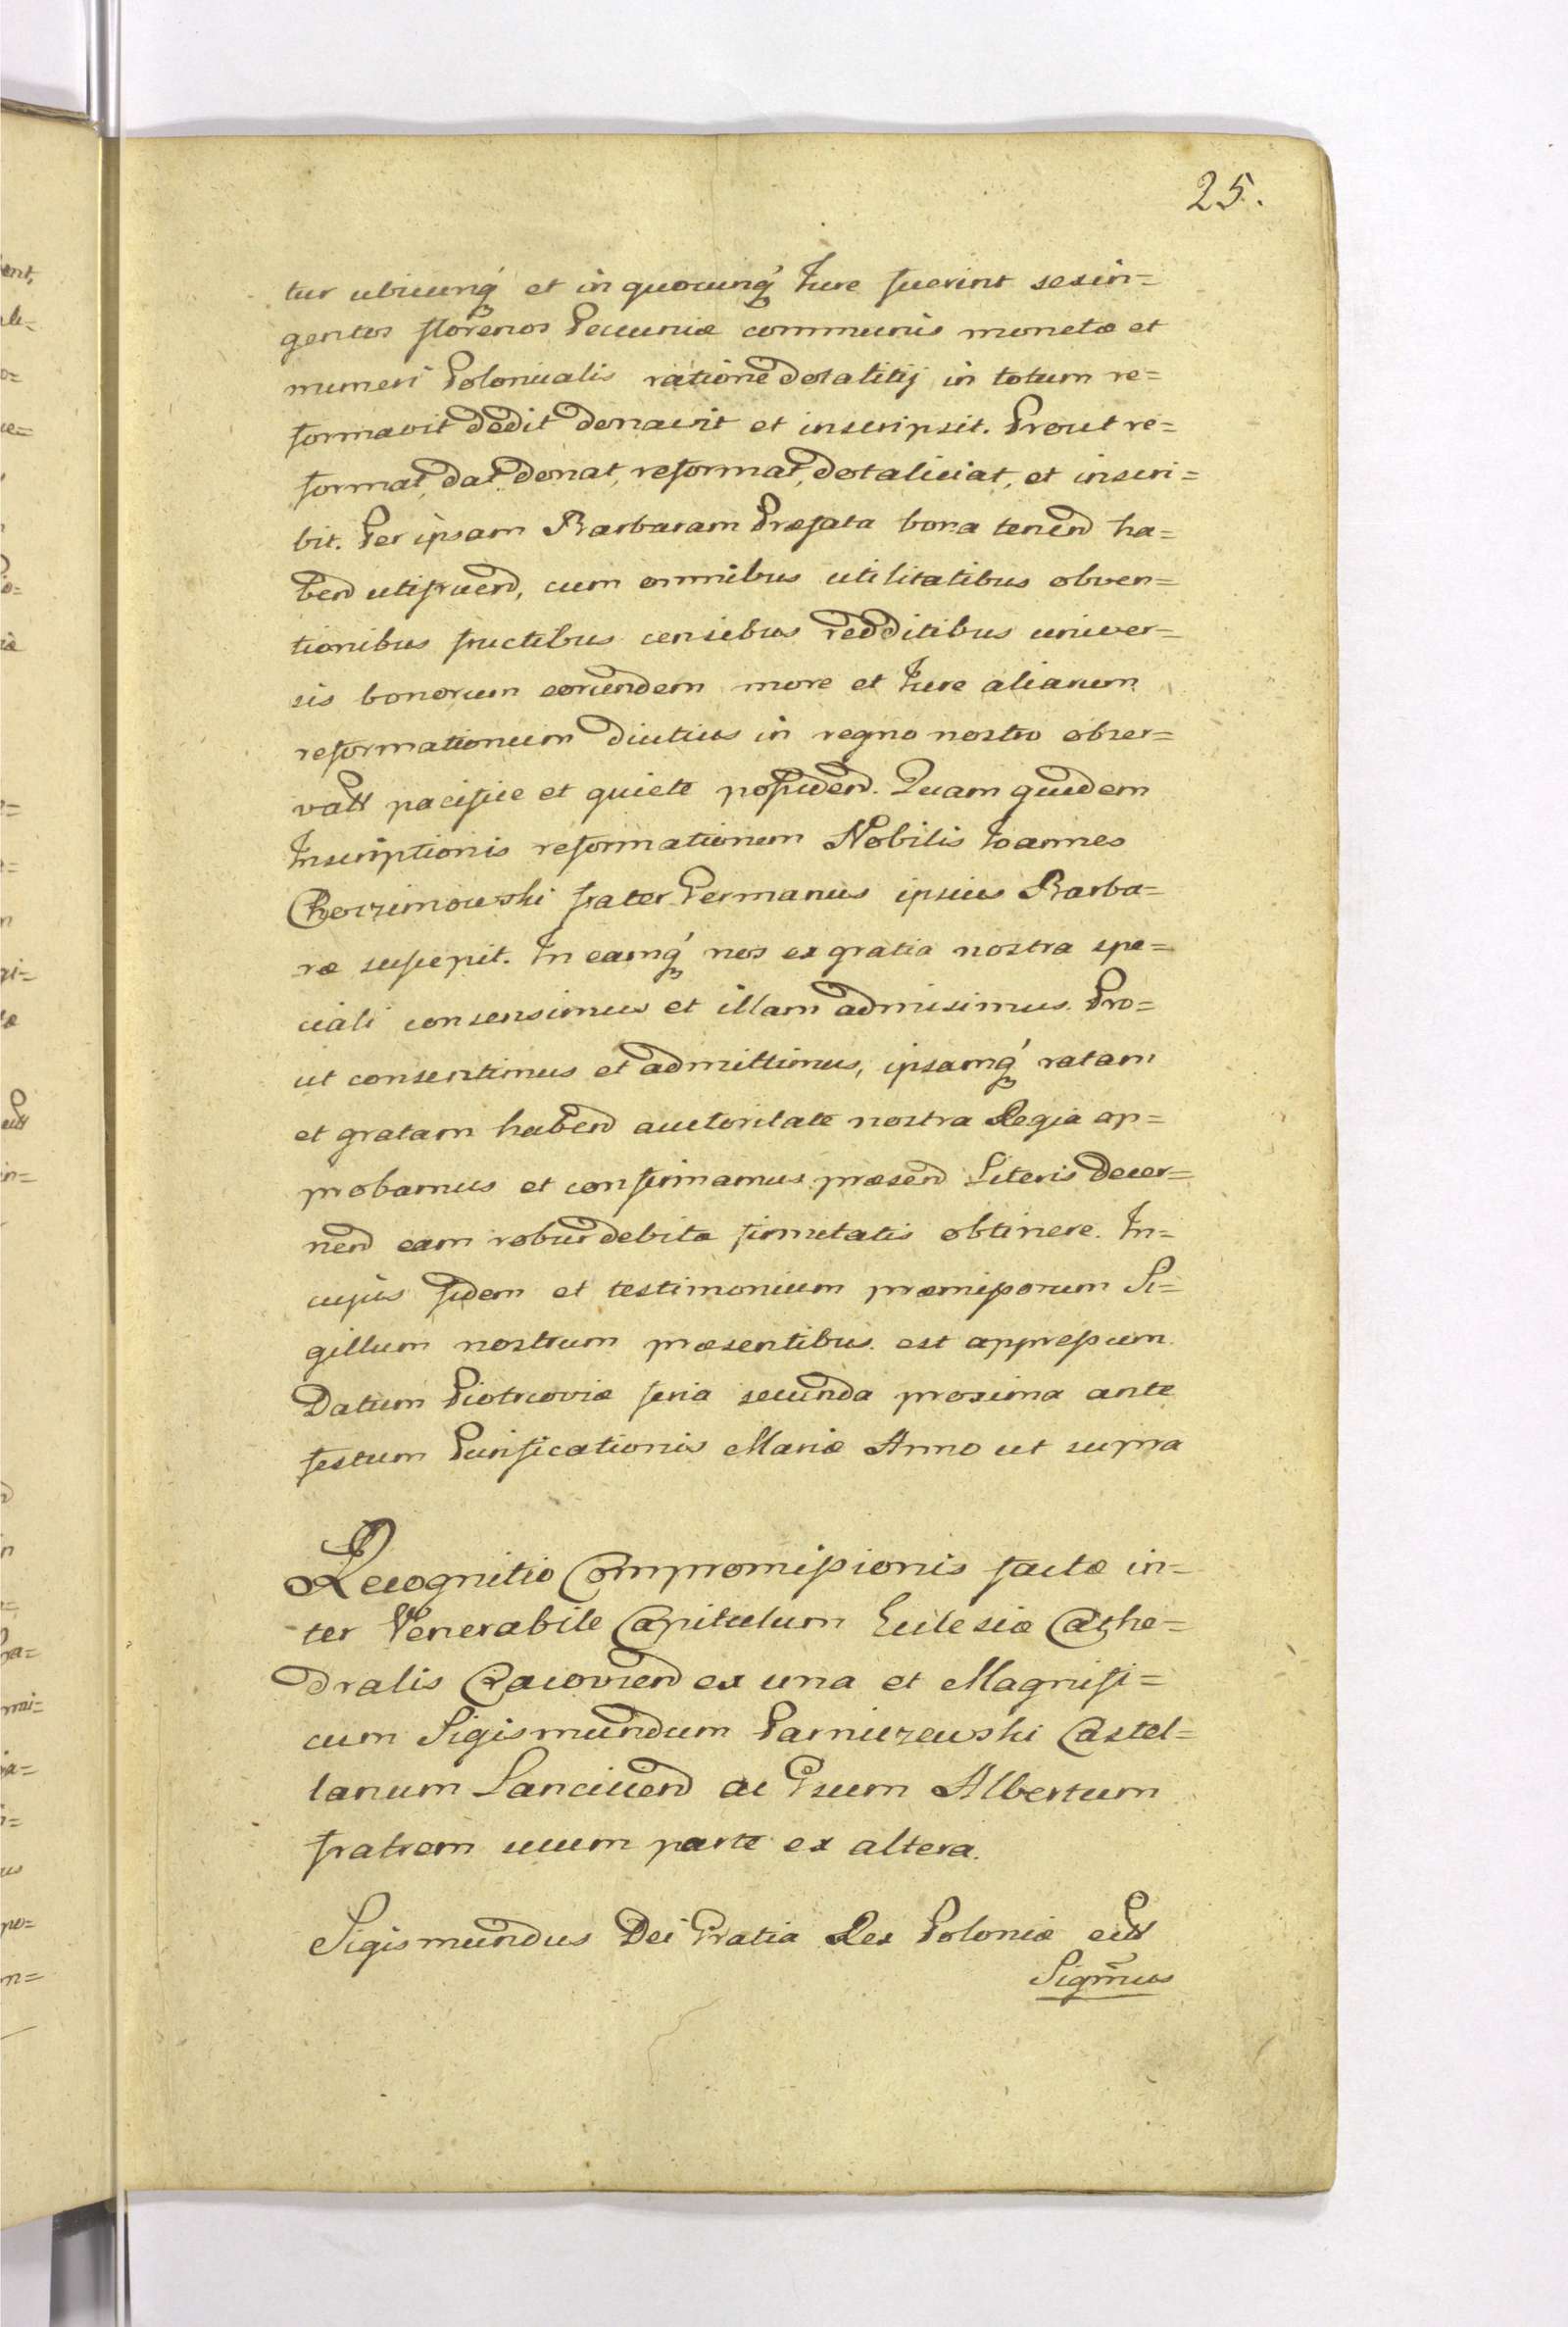 25.
tur ubicunq́ et in quocunq́ Jure fuerint sexin=
gentos florenos Pecuniæ communis monetæ et
numeri Polonicalis ratione dotalitij in totum re=
formavit dedit donavit et inscripsit. Prout re=
format, dat donat, reformat, dotaliciat, et inscri=
bit. Per ipsam Barbaram Præfata bona tenend ha=
bend utifruend, cum omnibus utilitatibus obven=
tionibus fructibus censibus redditibus univer=
sis bonorum eorundem more et Jure aliarum
reformationum diutius in regno nostro obser=
vatt pacifice et quiete possidend. Quam quidem
Inscriptionis reformationem Nobilis Joannes
frater Germanus ipsius Barba=
ræ suscepit. In eamq́ nos ex gratia nostra spe=
ciali consensimus et illam admisimus. Pro=
ut consentimus et admittimus, ipsamq́ ratam
et gratam habend auctoritate nostra Regia ap=
probamus et confirmamus præsend Literis decer=
nend eam robur debitæ firmitatis obtinere. In=
cujus fidem et testimonium præmissorum Si=
gillum nostrum præsentibus est appressum.
Datum Piotrcoviæ feria secunda proxima ante
festum Purificationis Mariæ Anno ut supra
Recognitio Compromissionis factæ in=
ter Venerabile Capitulum Eclesiæ Cathe=
dralis Cracoviend ex una et Magnifi=
cum Sigismundum Parniczewski Castel=
lanum Lanciciend ac Gsum Albertum
fratrem suum parte ex altera.
Sigismundus Dei Gratia Rex Poloniæ ectt
Sigm̃us